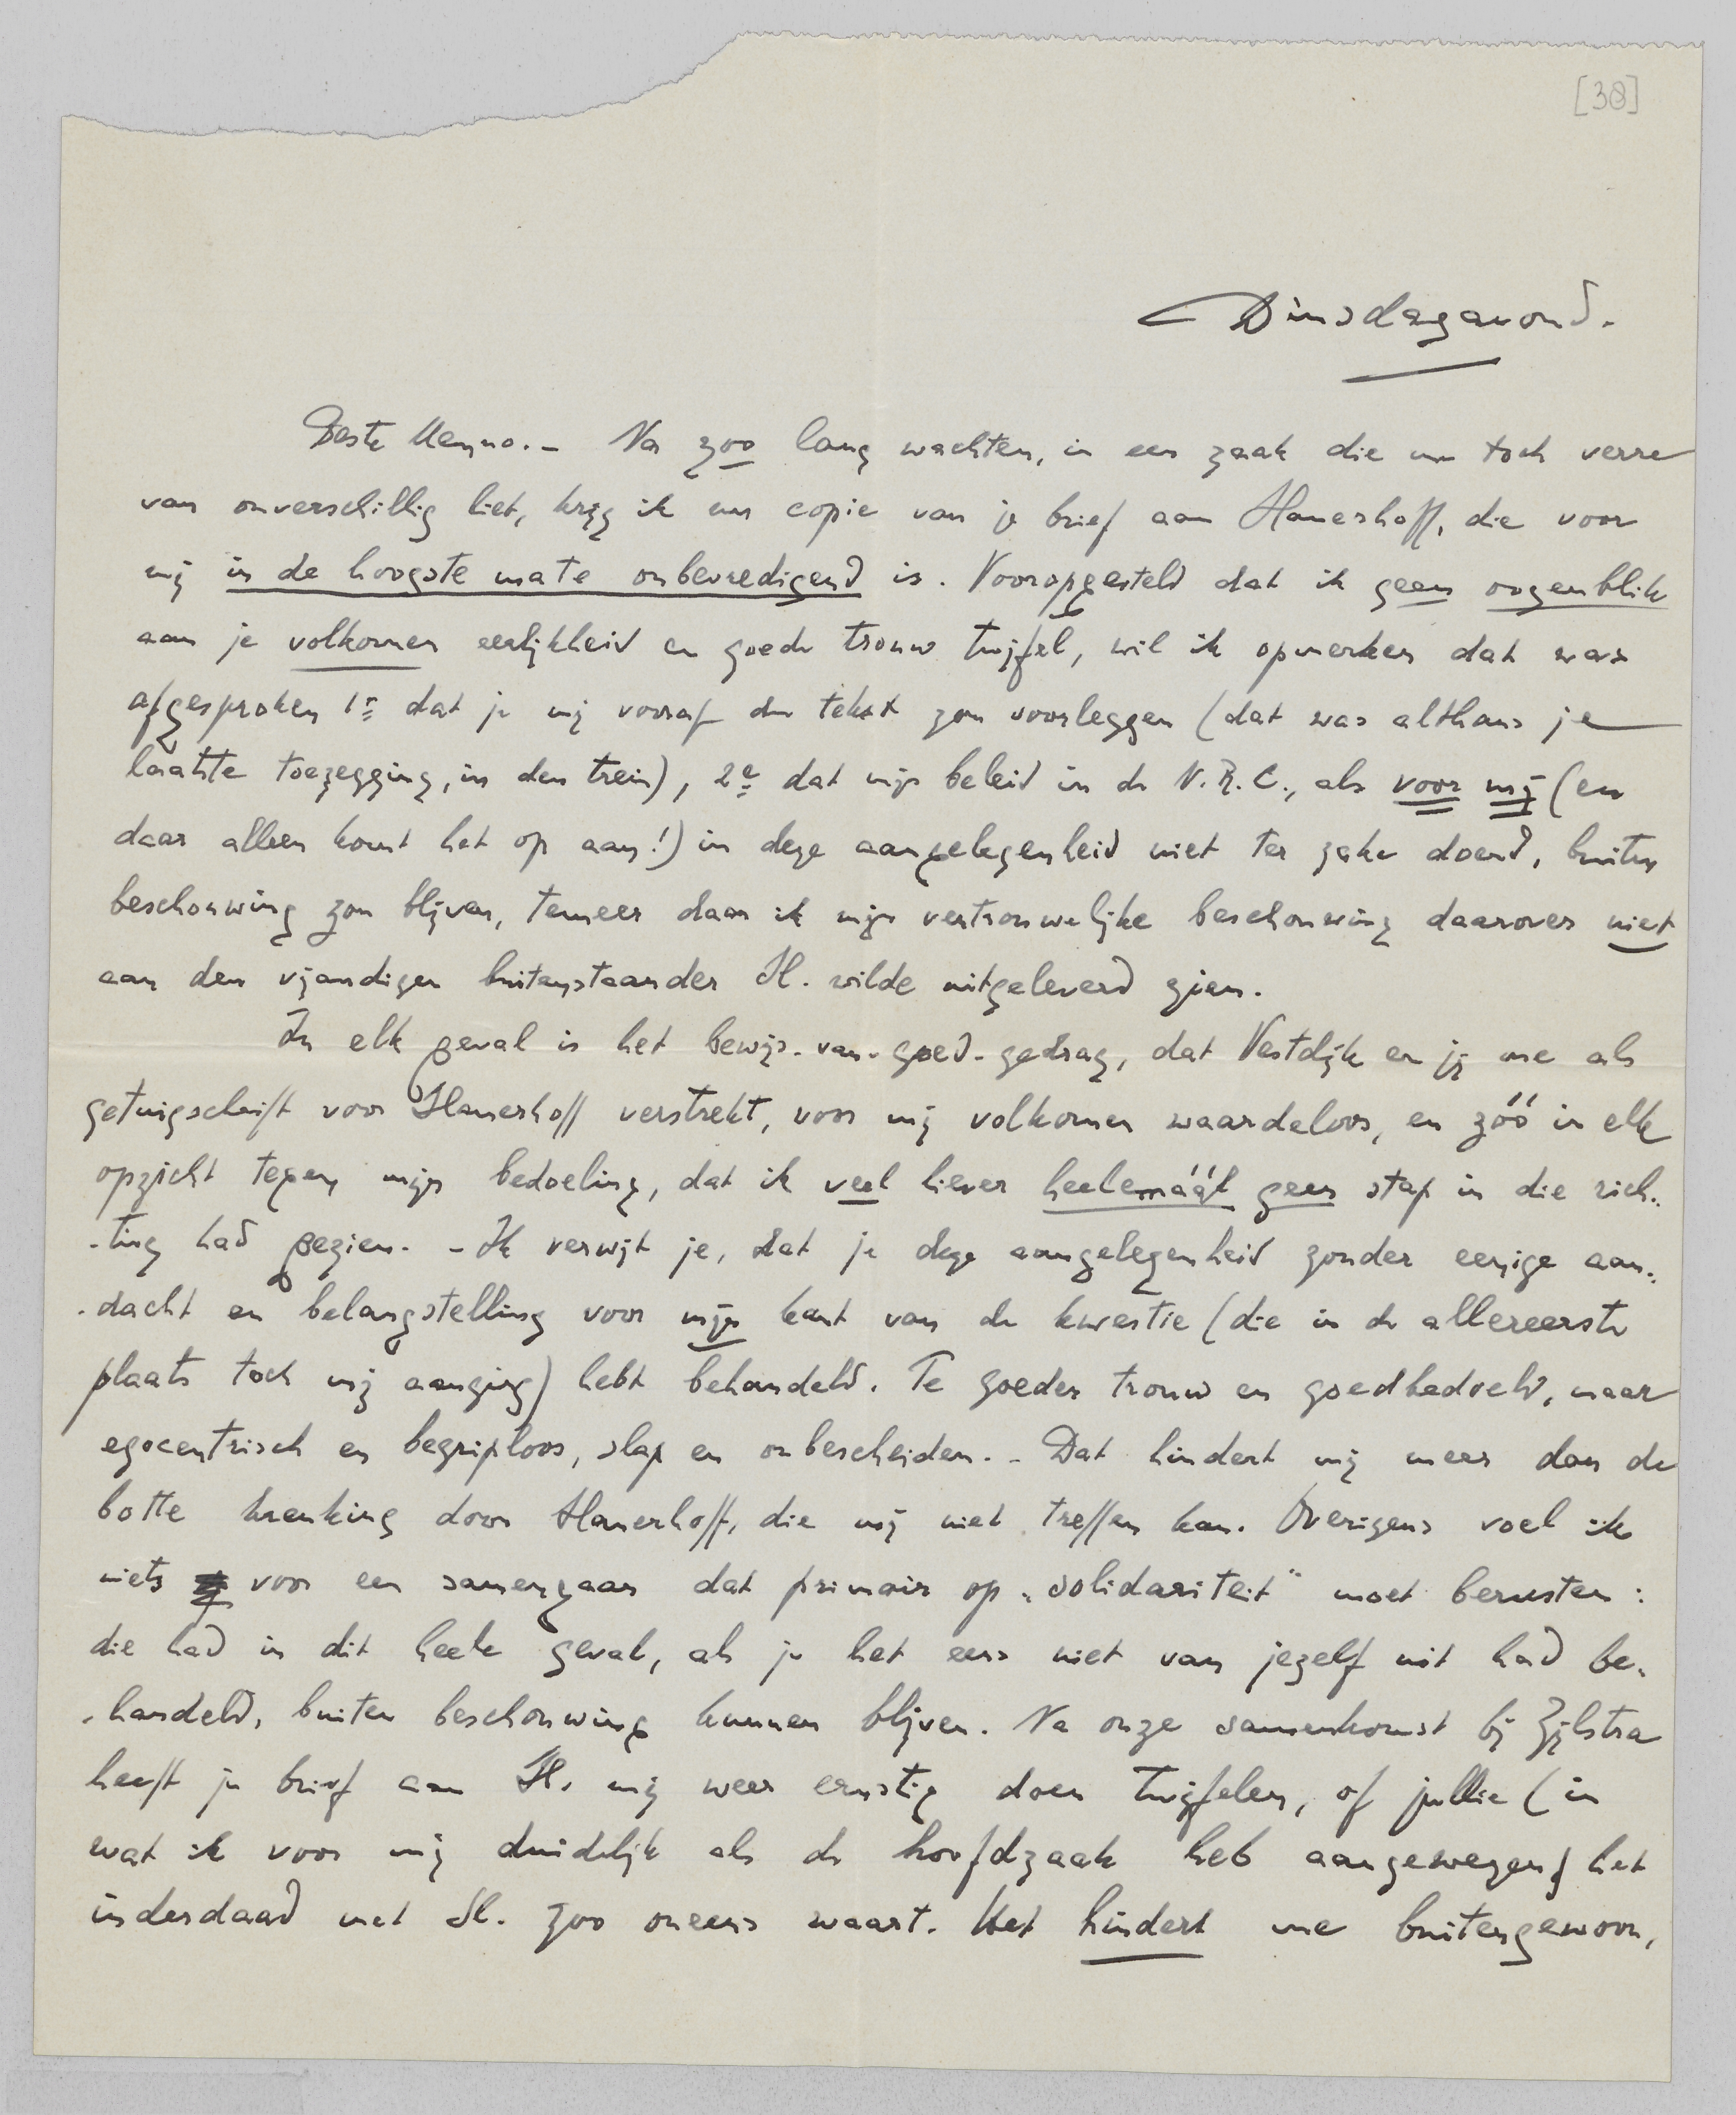 [38]
Dinsdagavond.
Beste Menno. – Na zoo lang wachten, in een zaak die me toch verre
van onverschillig liet, krijg ik een copie van je brief aan Slauerhoff, die voor
mij in de hoogste mate onbevredigend is. Vooropgesteld dat ik geen oogenblik
aan je volkomen eerlijkheid en goede trouw twijfel, wil ik opmerken dat was
afgesproken 1e dat je mij vooraf den tekst zou voorleggen (dat was althans je
laatste toezegging, in den trein), 2e dat mijn beleid in de N.R.C., als voor mij (en
daar alleen komt het op aan!) in deze aangelegenheid niet ter zake doend, buiten
beschouwing zou blijven, temeer daar ik mijn vertrouwelijke beschouwing daarover niet
aan den vijandigen buitenstaander Sl. wilde uitgeleverd zien.
In elk geval is het bewijs-van-goed-gedrag, dat Vestdijk en jij me als
getuigschrift voor Slauerhoff verstrekt, voor mij volkomen waardeloos, en zóó in elk
opzicht tegen mijn bedoeling, dat ik veel liever heelemáál geen stap in die rich-
-ting had gezien. – Ik verwijt je, dat je deze aangelegenheid zonder eenige aan-
-dacht en belangstelling voor mijn kant van de kwestie (die in de allereerste
plaats toch mij aanging) hebt behandeld. Te goeder trouw en goedbedoeld, maar
egocentrisch en begriploos, slap en onbescheiden. – Dat hindert mij meer dan de
botte krenking door Slauerhoff, die mij niet treffen kan. Overigens voel ik
niets voor een samengaan dat primair op „solidariteit" moet berusten:
die had in dit heele geval, als je het eens niet van jezelf uit had be-
-handeld, buiten beschouwing kunnen blijven. Na onze samenkomst bij Zijlstra
heeft je brief aan Sl. mij weer ernstig doen twijfelen, of jullie (in
wat ik voor mij duidelijk als de hoofdzaak heb aangewezen) het
inderdaad met Sl. zoo oneens waart. Het hindert me buitengewoon,